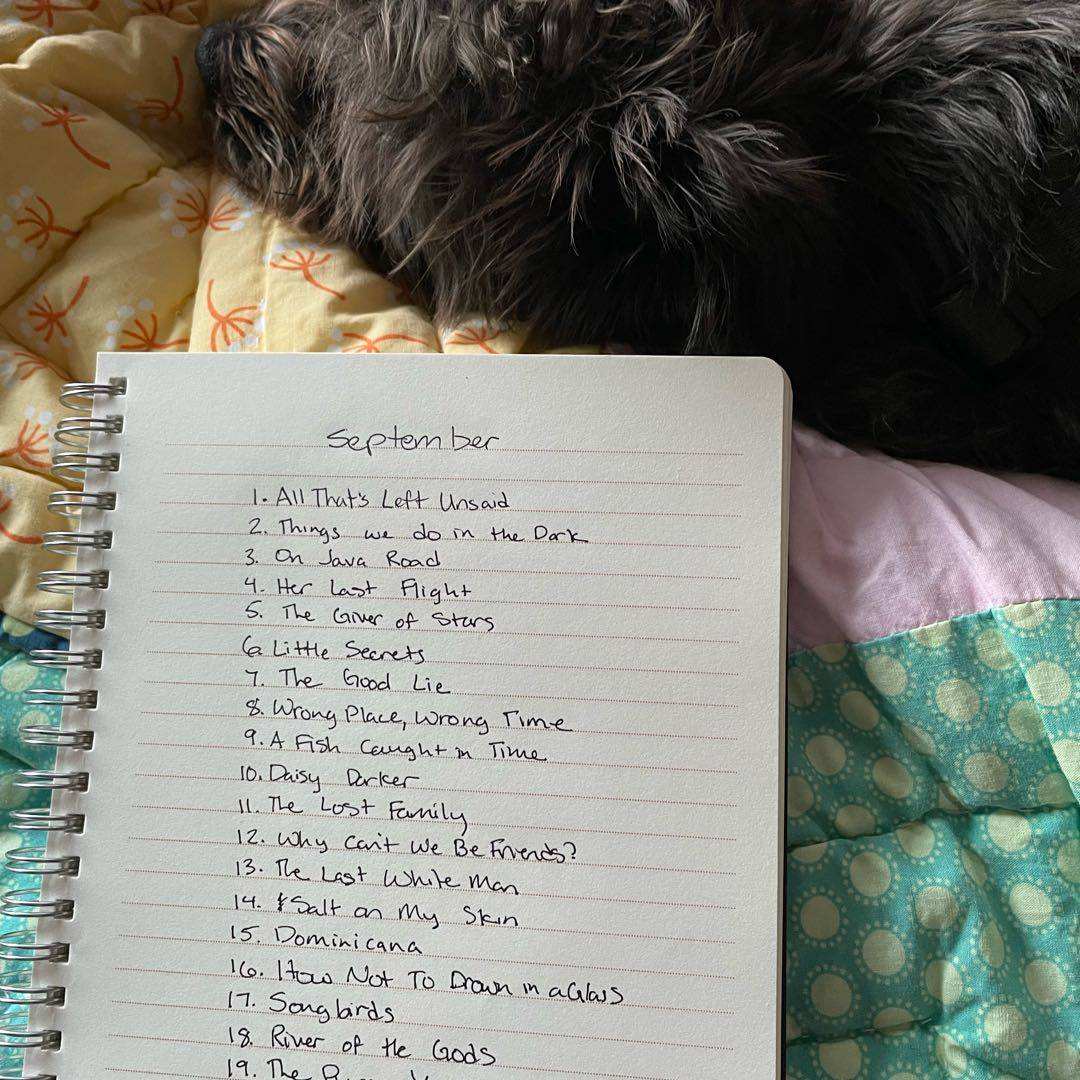 September
1. All That's Left Unsaid
2. Things we do in the Dark
3. On Java Road
4. Her Last Flight
5. The Giver of Stars
6. Little Secrets
7. The Good Lie
8. Wrong Place, Wrong Time
9. A Fish Caught in Time
10. Daisy Darker
11. The Lost Family
12. Why Can't We Be Friends?
13. The Last White Man
14. Salt on My Skin
15. Dominicana
16. How Not To Drown in a Glass
17. Songbirds
18. River of the Gods
19. The